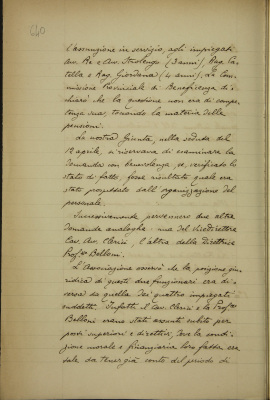 60
l'assunzione in servizio, agli impiegati
Avv. Re e Avv. Strolengo (3 anni), Rag. 
tella e Rag. Giordana (4 anni), La Com-
missione Provinciale di Beneficenza di-
chiarò che la questione non era di compe-
tenza sua, toccando la materia delle
pensioni.
La nostra Giunta, nella seduta del
12 aprile, si riservava di esaminare la
domanda con benevolenza se, verificato lo
stato di fatto, fosse risultato quale era
stato prospettato dall'organizzazione del
personale.
Successivamente pervennero due altre
domande analoghe: una del Vicedirettore
Cav. Avv. Clerici, l'altra della Direttrice
Prof.ssa Belloni.
L'Associazione osservò che la posizione giu-
ridica di questi due funzionari era di-
versa da quella dei quattro impiegati
suddetti. Infatti il Cav. Clerici e la Prof.ssa
Belloni erano stati assunti subito per
posti superiori e direttivi, ove la condi-
zione morale e finanziaria loro fatta era
tale da tener già conto del periodo di